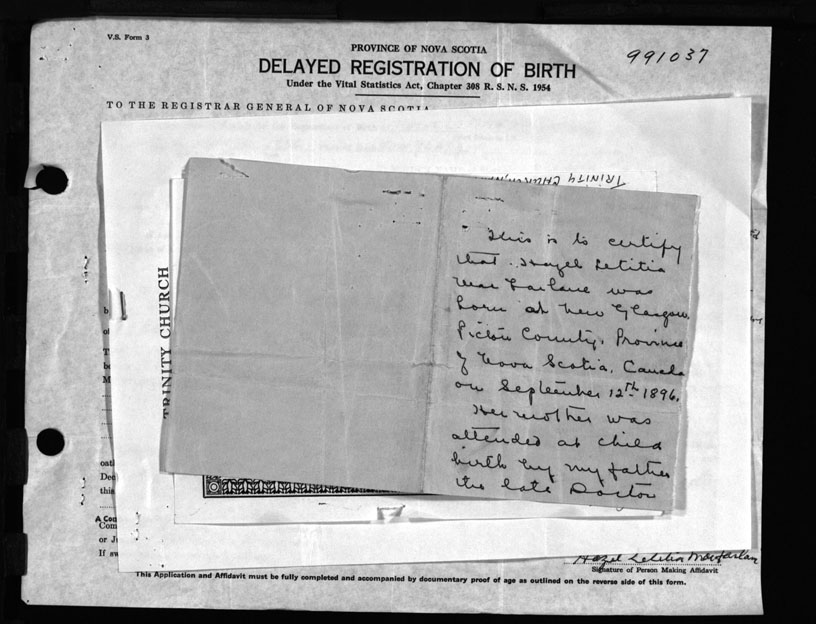 V.S. Form 3
991037
PROVINCE OF NOVA SCOTIA
DELAYED REGISTRATION OF BIRTH
Under the Vital Statistics Act, Chapter 308 R. S. N. S. 1954
TO THE REGISTRAR GENERAL OF NOVA SCOTIA
TRINITY CHURCH
TRINITY CHURCH
This is to certify
that Hazel Letitia
MacFarlane was
born at New Glasgow,
Pictou County, Province
of Nova Scotia, Canada
on September 12th 1896.
Her mother was
attended at child
birth by my father
the late Doctor
oath
Dec
this
A Com
Com
or J
If sw
Hazel Letitia Macfarlan
Signature of Person Making Affidavit
This Application and Affidavit must be fully completed and accompanied by documentary proof of age as outlined on the reverse side of this form.